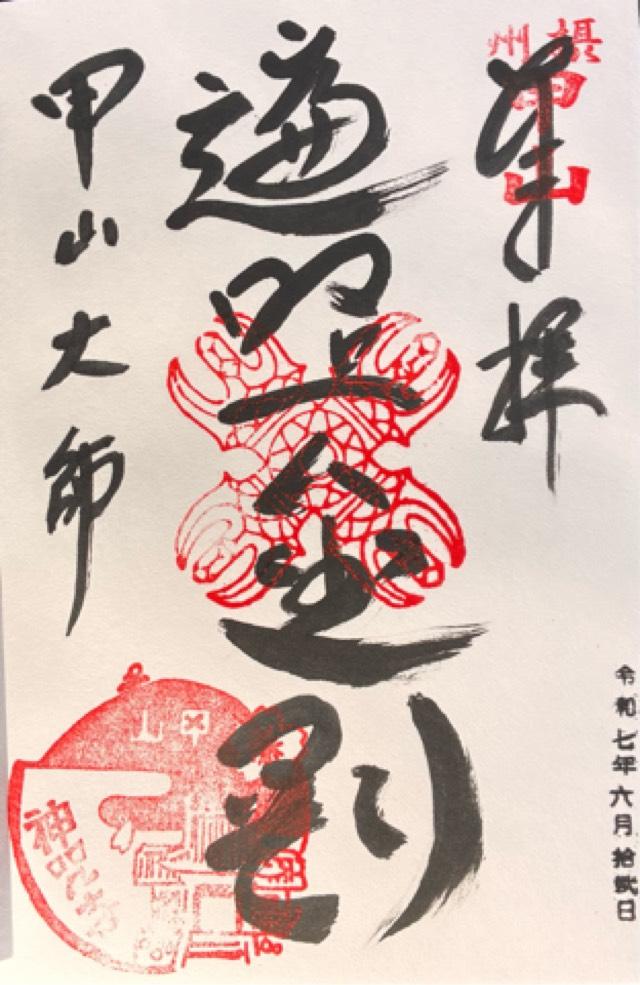 奉拝
摂州
甲山
令和七年六月拾弐日
遍照金剛
甲山大師
甲山
神呪寺